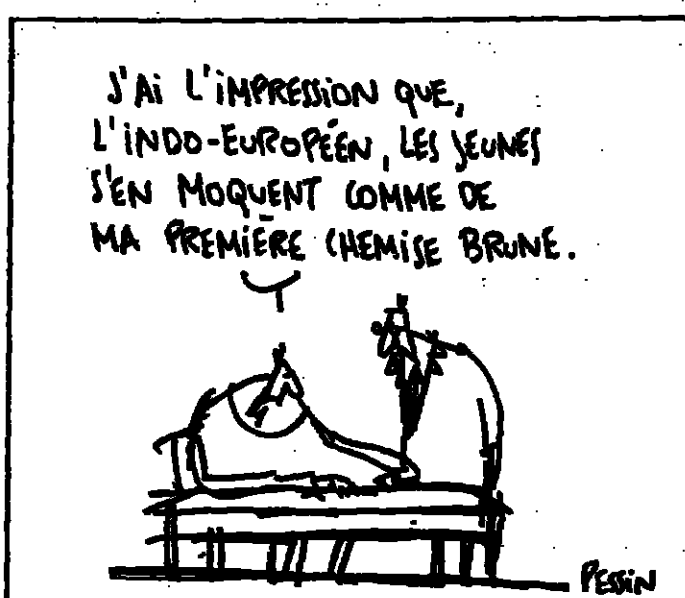 J'Ai L'iMPRESSiON QUE,
L'iNDO-EUROPÉEN, LES JEUNES
S'EN MOQUENT COMME DE
MA PREMiÈRE CHEMiSE BRUNE.
PESSiN